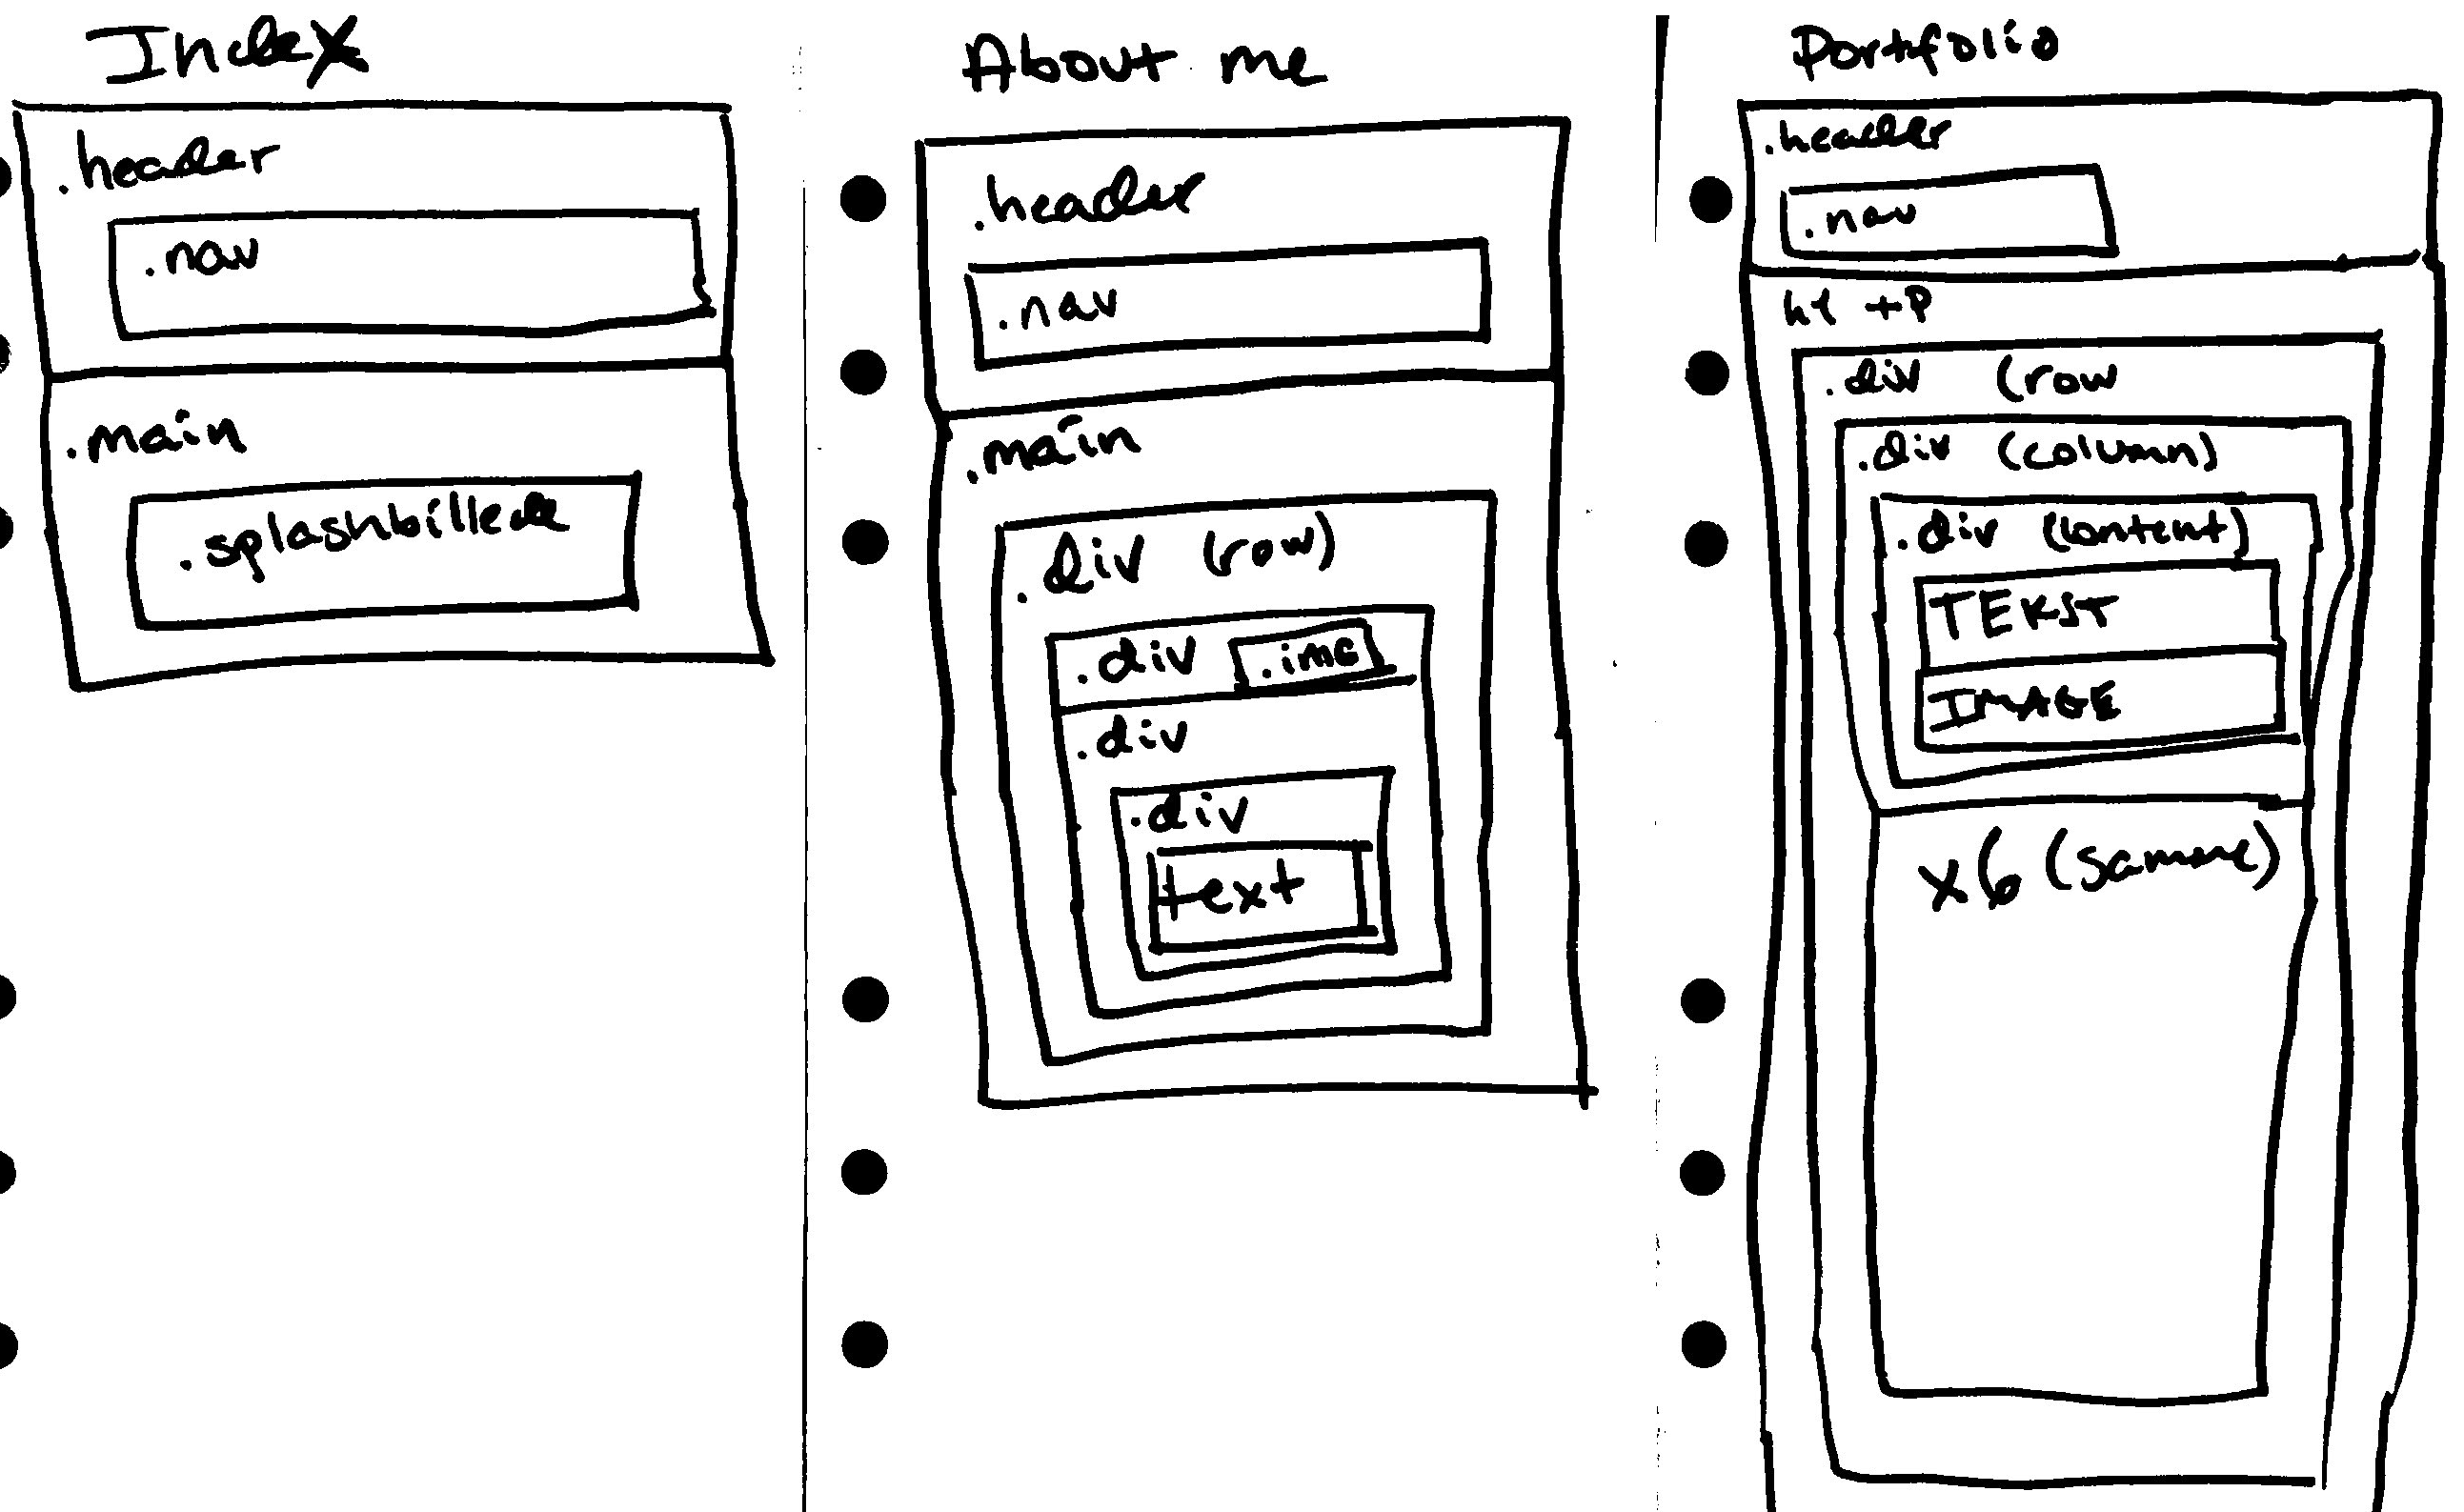 Index
.header
.nav
.main
.splashbillede
About me
.header
.nav
.main
.div (row)
.div .img
.div
.div
text
Portfolio
.header
.nav
h1 + P
.div (row
.div (column)
.div (content)
TEKST
IMAGE
x6 (samme)